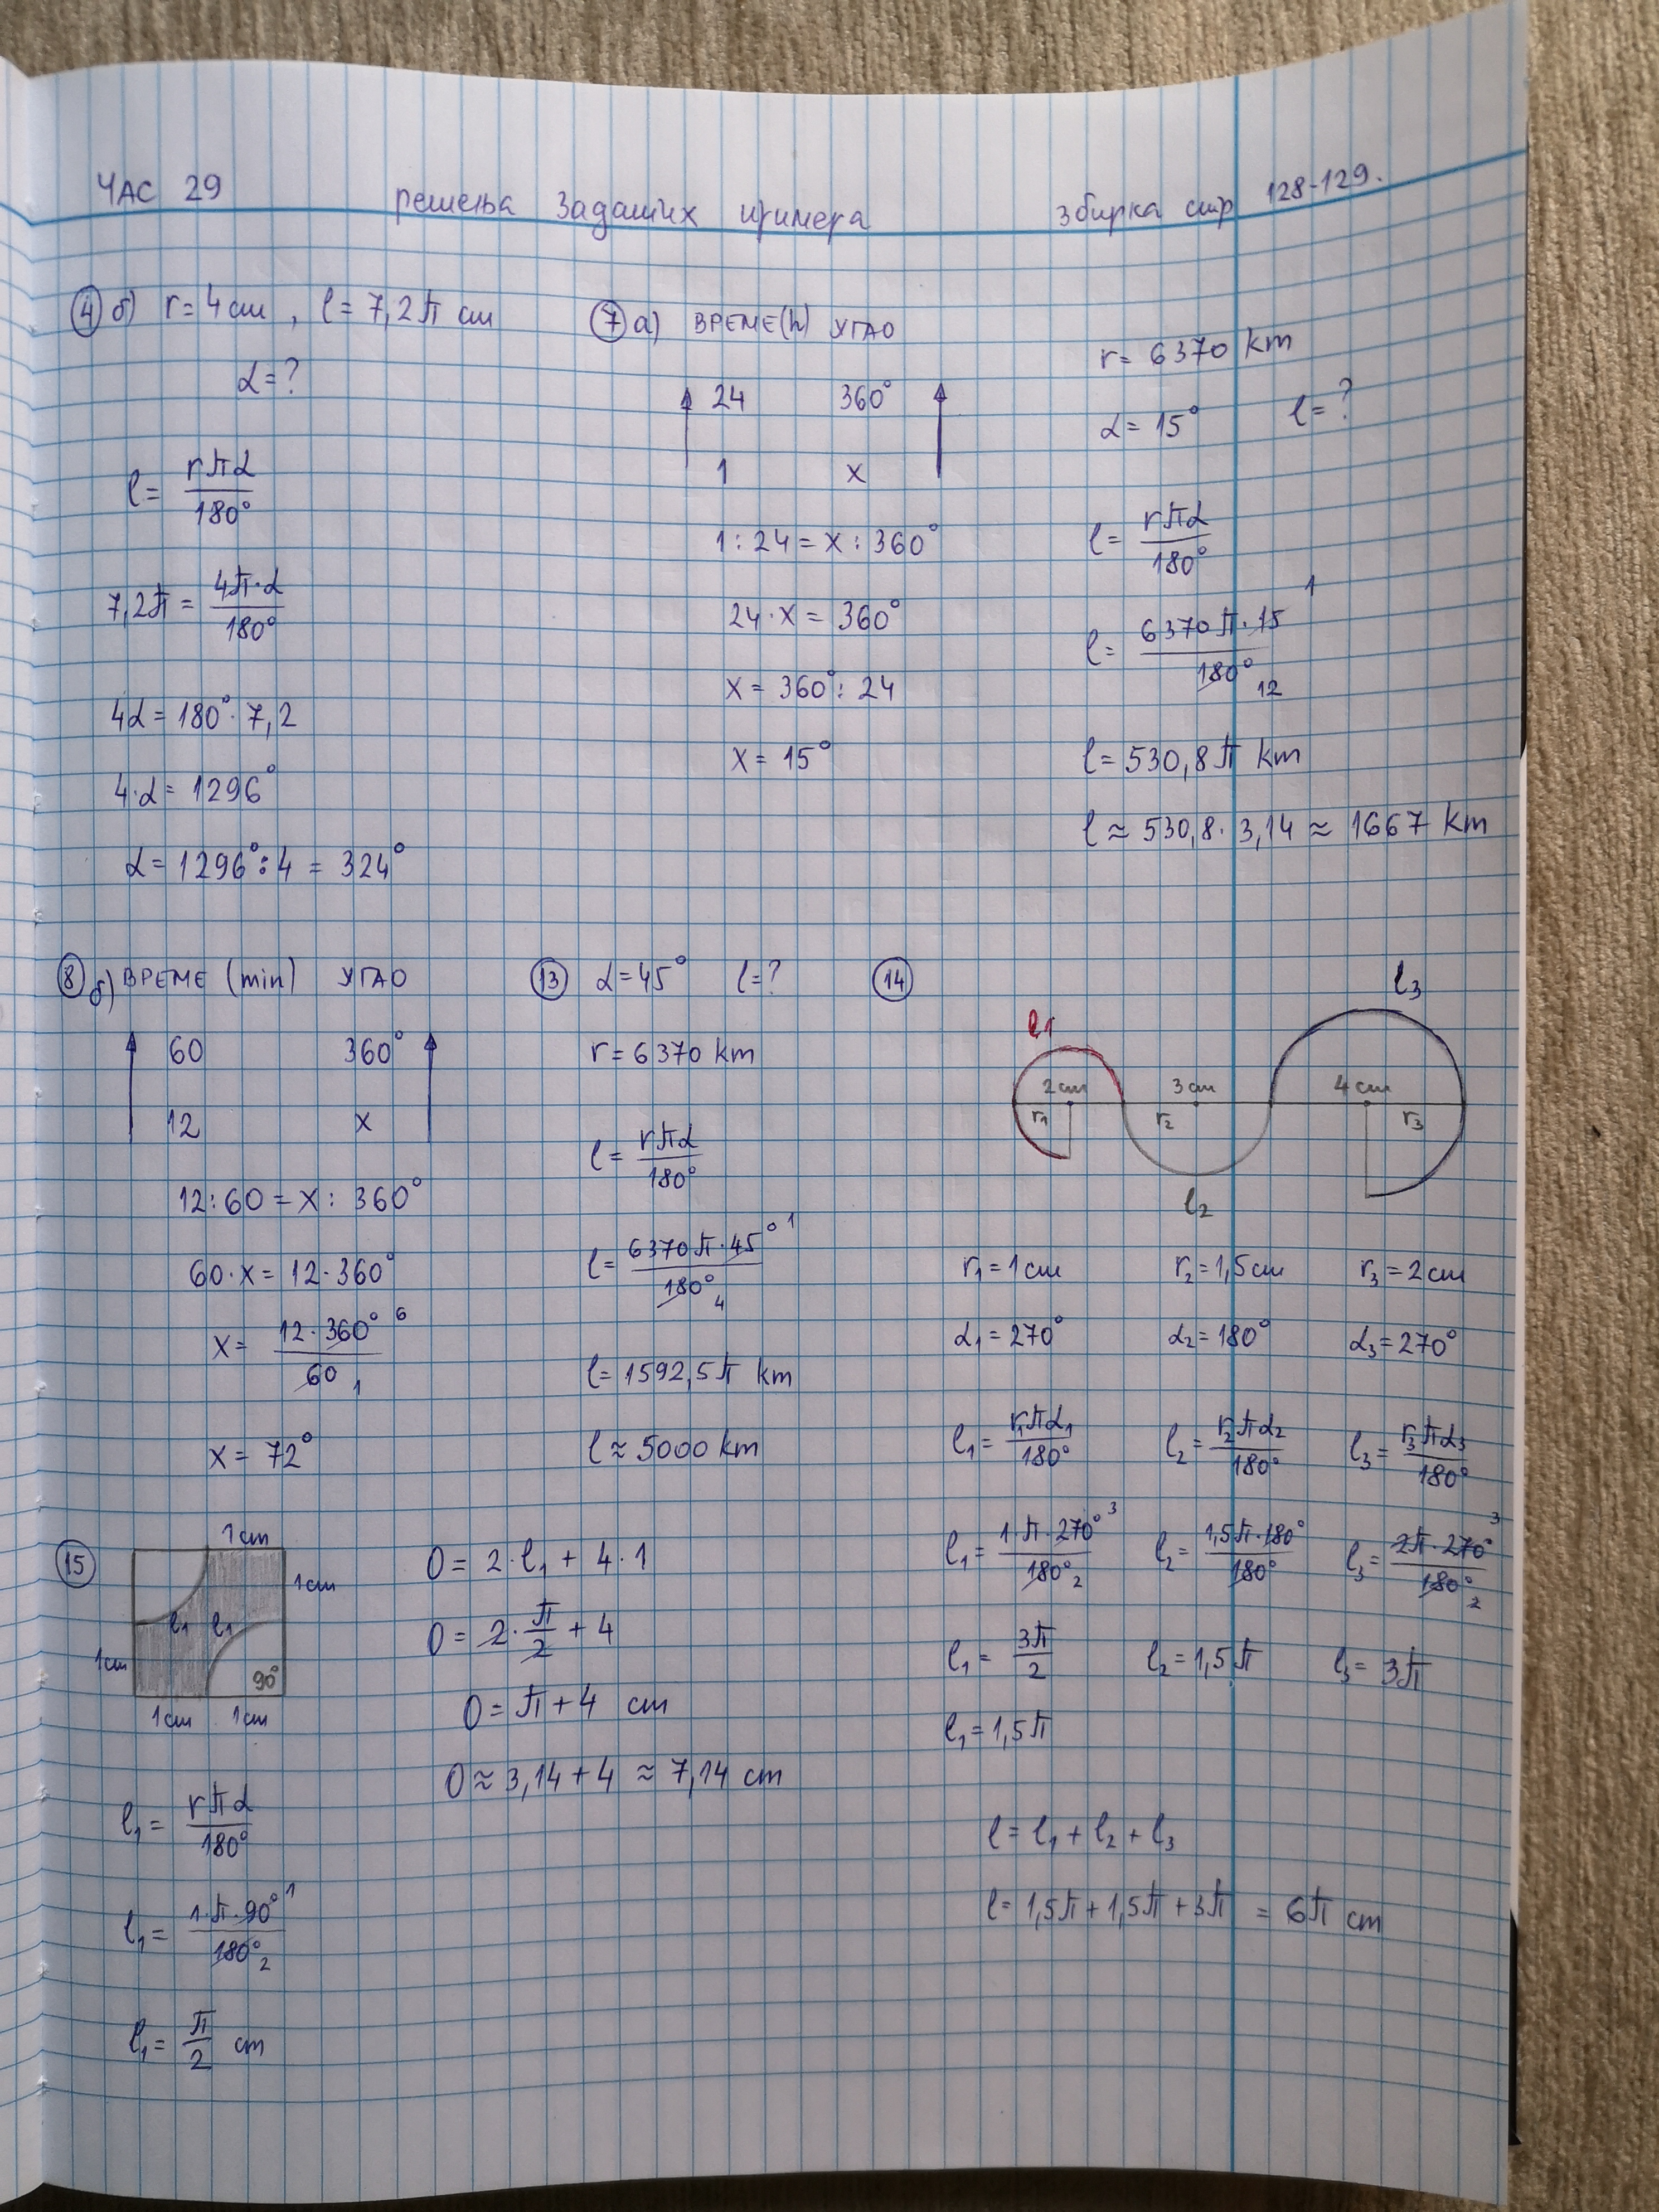 ЧАС 29 решења задатих примера збирка стр 128-129.
④ б) r = 4 cm , l = 7,2π cm
α = ?
l = rπα / 180°
7,2π = 4π·α / 180°
4α = 180°· 7,2
4·α = 1296°
α = 1296° : 4 = 324°
⑦ а) ВРЕМЕ(h) УГАО
24 360°
1 x
1 : 24 = x : 360°
24 · x = 360°
x = 360° : 24
x = 15°
r = 6370 km
α = 15° l = ?
l = rπα / 180°
l = 6370π · 15 / 180° 1 12
l = 530,8π km
l ≈ 530,8 · 3,14 ≈ 1667 km
⑧ б) ВРЕМЕ (min) УГАО
60 360°
12 x
12 : 60 = x : 360°
60 · x = 12 · 360°
x = 12 · 360° / 60 6 1
x = 72°
⑬ α = 45° l = ?
r = 6370 km
l = rπα / 180°
l = 6370π · 45° / 180° 1 4
l = 1592,5π km
l ≈ 5000 km
⑭
l3
l1
2 cm 3 cm 4 cm
r1 r2 r3
l2
r1 = 1 cm r2 = 1,5 cm r3 = 2 cm
α1 = 270° α2 = 180° α3 = 270°
l1 = r1πα1 / 180° l2 = r2πα2 / 180° l3 = r3πα3 / 180°
l1 = 1·π·270° / 180° 3 2 l2 = 1,5π·180° / 180° l3 = 2π·270° / 180° 3 2
l1 = 3π / 2 l2 = 1,5π l3 = 3π
l1 = 1,5π
l = l1 + l2 + l3
l = 1,5π + 1,5π + 3π = 6π cm
⑮
1 cm
1 cm
l1 l1
1 cm
90°
1 cm 1 cm
l1 = rπα / 180°
l1 = 1·π·90° / 180° 1 2
l1 = π / 2 cm
O = 2 · l1 + 4 · 1
O = 2 · π / 2 + 4
O = π + 4 cm
O ≈ 3,14 + 4 ≈ 7,14 cm